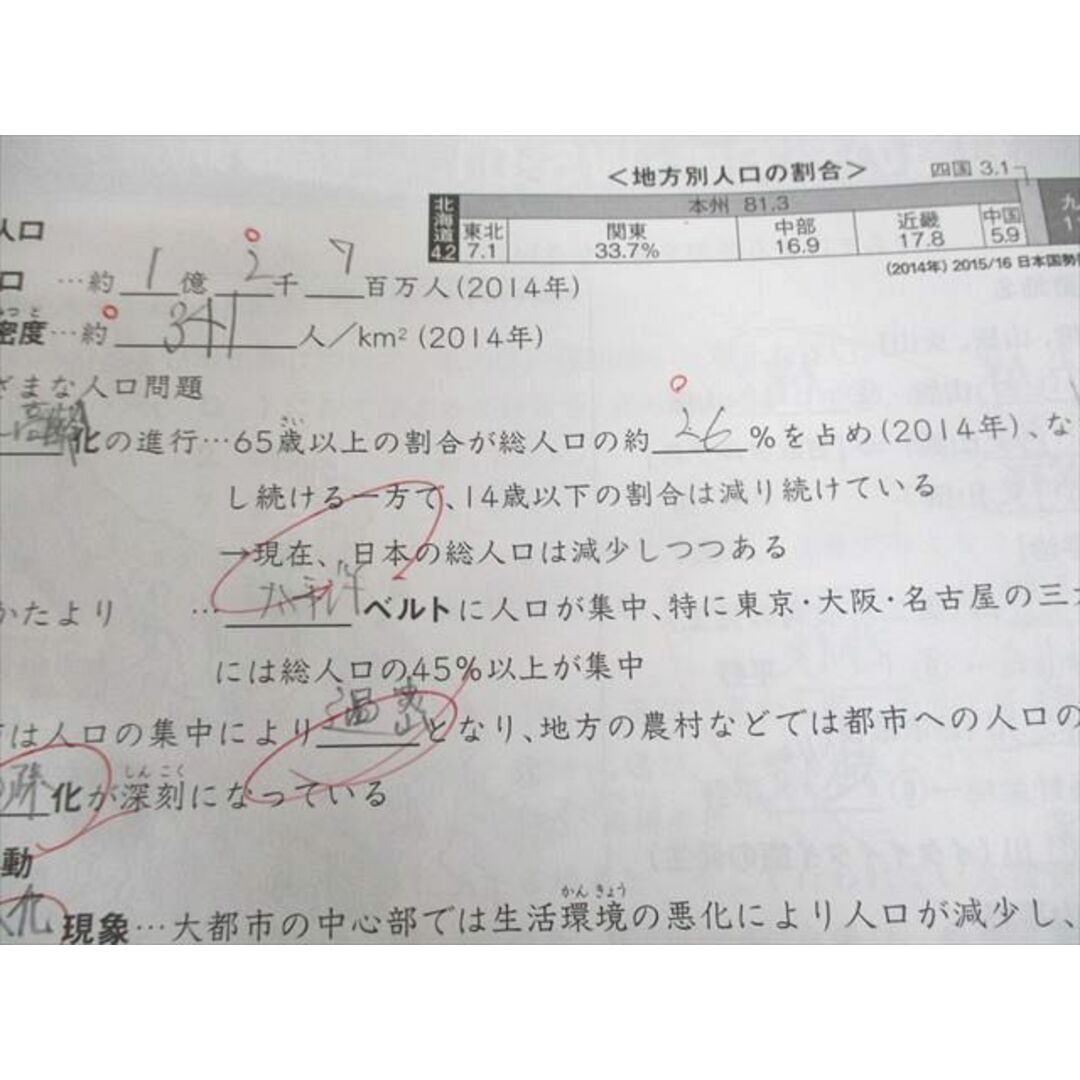 <地方別人口の割合> 四国 3.1
北海道 4.2 本州 81.3 九
東北 7.1 関東 33.7% 中部 16.9 近畿 17.8 中国 5.9
(2014年) 2015/16 日本国勢
人口
口 …約 1 億 2 千 7 百万人(2014年)
密度…約 341 人/km² (2014年)
ざまな人口問題
高齢化の進行…65歳以上の割合が総人口の約 26 %を占め(2014年)、な
し続ける一方で、14歳以下の割合は減り続けている
→現在、日本の総人口は減少しつつある
かたより … 太平洋ベルトに人口が集中、特に東京・大阪・名古屋の三
には総人口の45%以上が集中
は人口の集中により となり、地方の農村などでは都市への人口の
疎化が深刻になっている
動
化 現象…大都市の中心部では生活環境の悪化により人口が減少し、